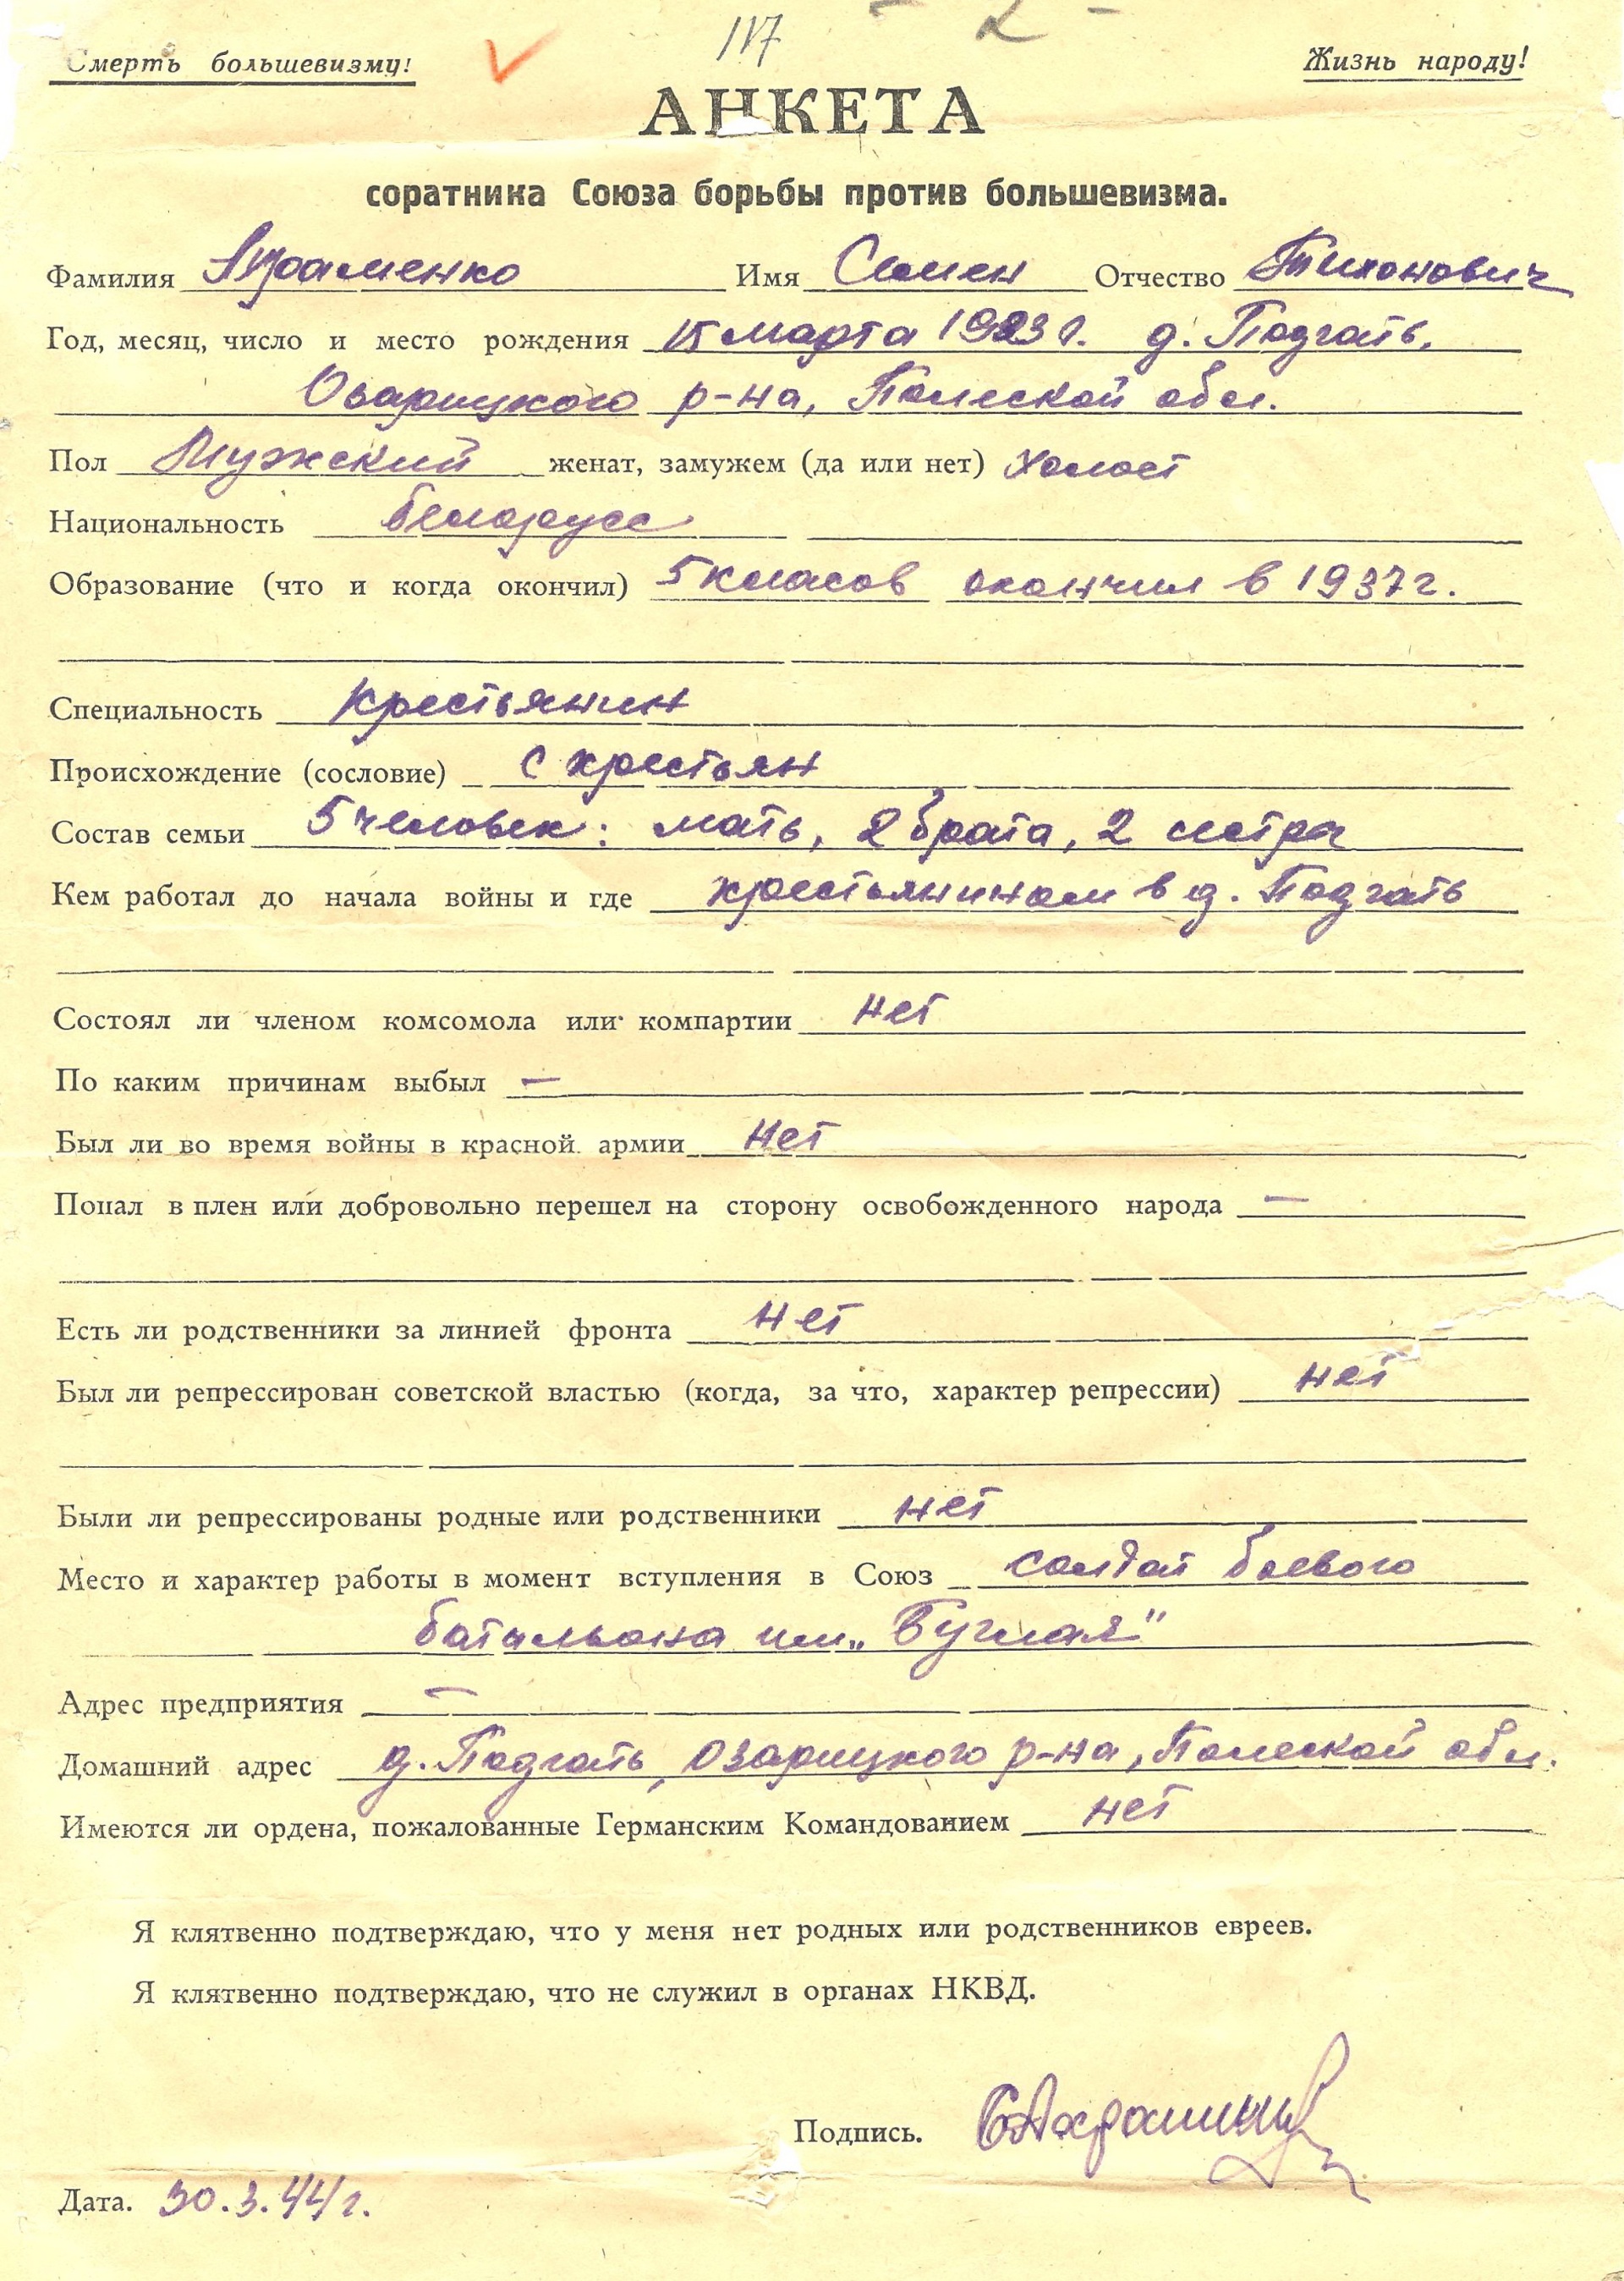 117 - 2 -
Смерть большевизму! Жизнь народу!
АНКЕТА
соратника Союза борьбы против большевизма.
Фамилия Имя Семен Отчество Тихонович
Год, месяц, число и место рождения 15 марта 1923 г. д. Подгать,
Озарицкого р-на, Полеской обл.
Пол Мужский женат, замужем (да или нет) холост
Национальность белорусс
Образование (что и когда окончил) 5 класов окончил в 1937 г.
Специальность Крестьянин
Происхождение (сословие) С крестьян
Состав семьи 5 человек: мать, 2 брата, 2 сестры
Кем работал до начала войны и где крестьянином в д. Подгать
Состоял ли членом комсомола или компартии нет
По каким причинам выбыл —
Был ли во время войны в красной армии нет
Попал в плен или добровольно перешел на сторону освобожденного народа —
Есть ли родственники за линией фронта нет
Был ли репрессирован советской властью (когда, за что, характер репрессии) нет
Были ли репрессированы родные или родственники нет
Место и характер работы в момент вступления в Союз солдат боевого
батальона им.
Адрес предприятия —
Домашний адрес д. Подгать, Озарицкого р-на, Полеской обл.
Имеются ли ордена, пожалованные Германским Командованием нет
Я клятвенно подтверждаю, что у меня нет родных или родственников евреев.
Я клятвенно подтверждаю, что не служил в органах НКВД.
Подпись.
Дата. 30.3.44 г.